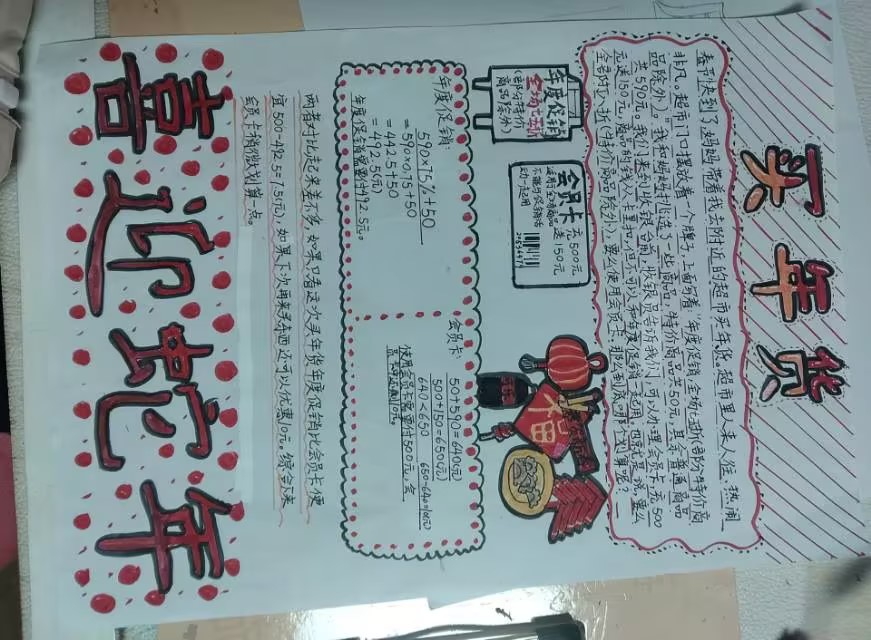 买年货
春节快到了,妈妈带着我去附近的超市买年货。超市里人来人往,热闹
非凡。超市门口摆放着一个牌子,上面写着:年度促销,全场七五折(部分特价商
品除外)。我和妈妈挑选了一些商品,特价商品共50元,其余普通商品
共590元。我们来到收银台前,收银员告诉我们,可以办理会员卡,充500
元送150元,商品的钱从卡里扣,但不可以和年度促销一起用,也就是说,要么
全部七五折(特价商品除外),要么使用会员卡,那么到底哪个划算呢?
年度促销
全场七五折
(部分特价
商品除外)
会员卡
充500元
送150元
不能与促销活
动一起用
年度促销:
590×75%+50
=590×0.75+50
=442.5+50
=492.5(元)
年度促销需要付492.5元。
会员卡:
50+590=640(元)
500+150=650(元)
640<650
650-640=10(元)
使用会员卡需要付500元,会
两者对比起来差不多,如果只看这次买年货年度促销比会员卡便
宜500-492.5=7.5(元),如果下次再来买东西还可以优惠10元。综合下来
会员卡稍微划算一点。
喜迎蛇年